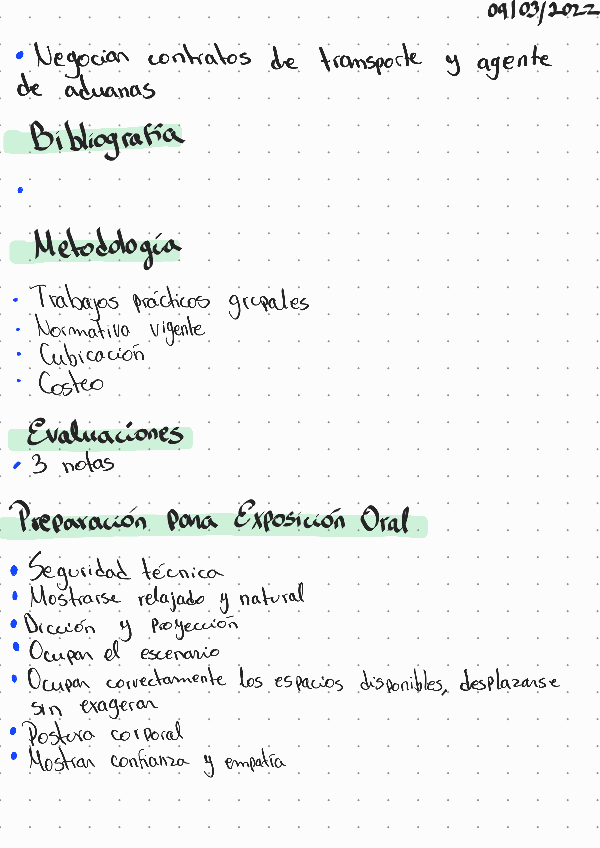 09/03/2022
• Negocian contratos de transporte y agente
de aduanas
Bibliografía
•
Metodología
• Trabajos prácticos grupales
• Normativa vigente
• Cubicación
• Costeo
Evaluaciones
• 3 notas
Preparación para Exposición Oral
• Seguridad técnica
• Mostrarse relajado y natural
• Dicción y Proyección
• Ocupar el escenario
• Ocupar correctamente los espacios disponibles, desplazarse
sin exagerar
• Postura corporal
• Mostrar confianza y empatía